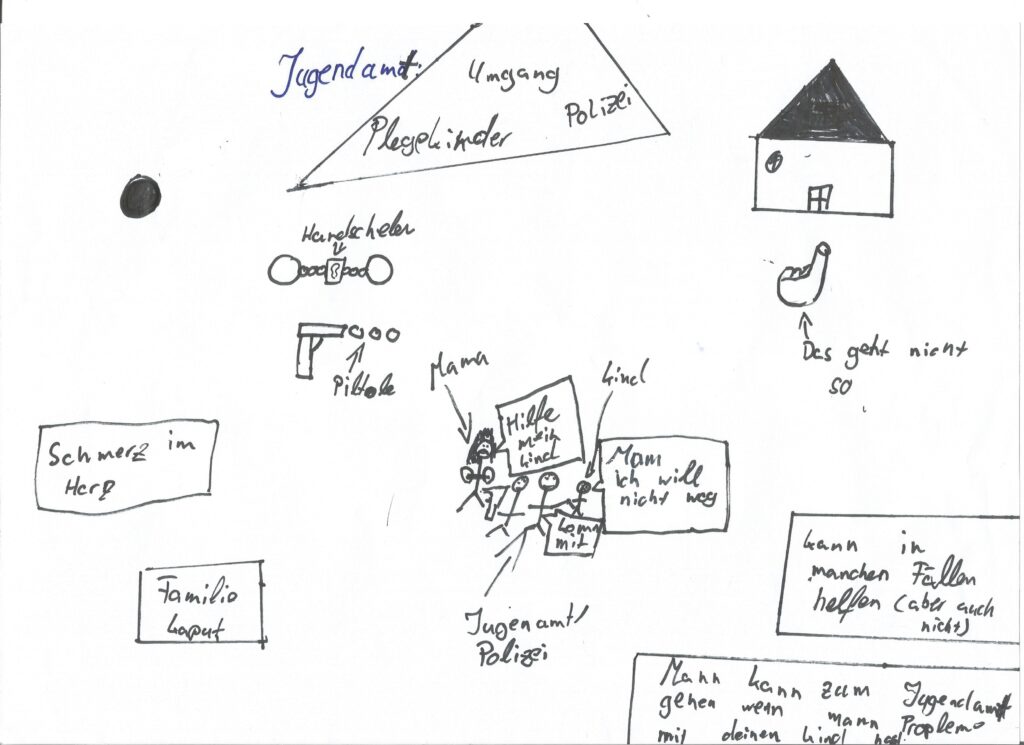 Jugendamt:
Umgang
Polizei
Plegekinder
Handschelen
Piltole
Das geht nicht
so
Mama
Kind
Hilfe
mein
Kind
Mam
ich will
nicht weg
komm
mit
Schmerz im
Herz
Familie
kaput
Jugenamt/
Polizei
kann in
manchen Fällen
helfen (aber auch
nicht)
Mann kann zum Jugendamt
gehen wenn mann Probleme
mit deinen Kind hast